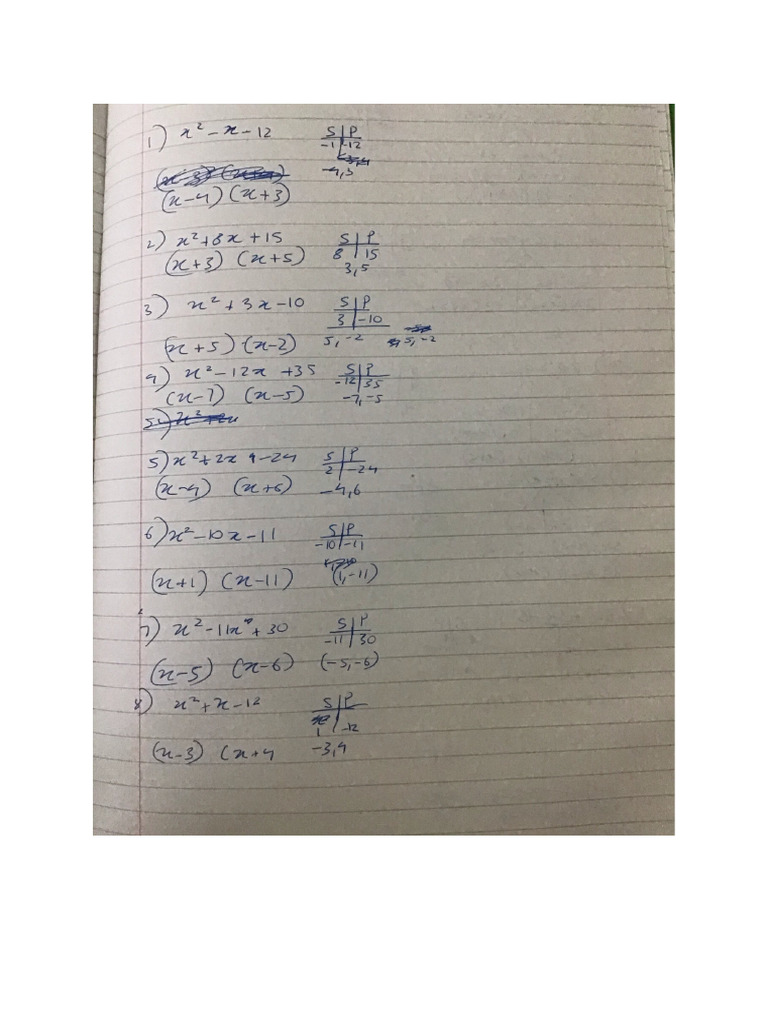 1) x² - x - 12 S | P
-1 | -12
-4, 3
(x-4) (x+3)
2) x² + 8x + 15 S | P
(x+3) (x+5) 8 | 15
3, 5
3) x² + 3x - 10 S | P
3 | -10
(x+5) (x-2) 5, -2 5, -2
4) x² - 12x + 35 S | P
-12 | 35
(x-7) (x-5) -7, -5
5) x² + 2x - 24 S | P
2 | -24
(x-4) (x+6) -4, 6
6) x² - 10x - 11 S | P
-10 | -11
(x+1) (x-11) (1, -11)
7) x² - 11x + 30 S | P
-11 | 30
(x-5) (x-6) (-5, -6)
8) x² + x - 12 S | P
1 | -12
(x-3) (x+4 -3, 4